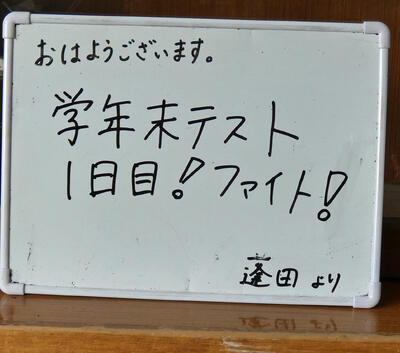 おはようございます。
学年末テスト
1日目!ファイト!
蓬田より